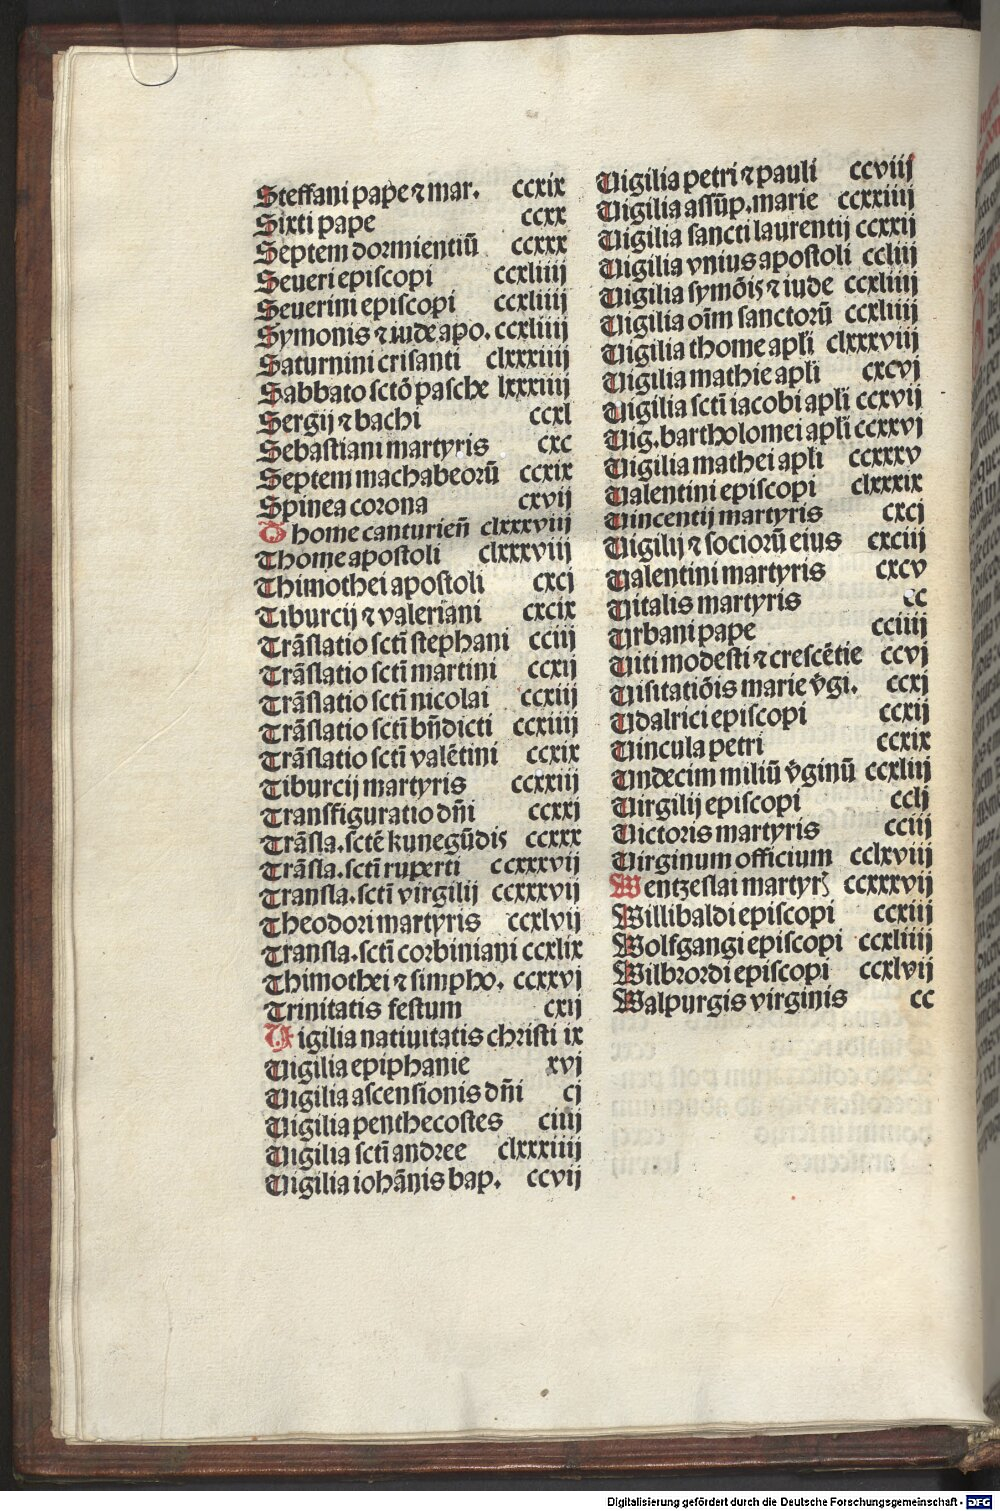 Steffani pape ⁊ mar. ccxix
Sixti pape ccxx
Septem dormientiū ccxxx
Seueri episcopi ccxliiij
Seuerini episcopi ccxliiij
Symonis ⁊ iude apo. ccxliiij
Saturnini crisanti clxxxiiij
Sabbato sctō pasche lxxxiiij
Sergij ⁊ bachi ccxl
Sebastiani martyris cxc
Septem machabeorū ccxix
Spinea corona cxvij
Thome canturień clxxxviij
Thome apostoli clxxxviij
Thimothei apostoli cxcj
Tiburcij ⁊ valeriani cxcix
Trāslatio sctī stephani cciij
Trāslatio sctī martini ccxij
Trāslatio sctī nicolai ccxiij
Trāslatio sctī bn̄dicti ccxiiij
Trāslatio sctī valētini ccxix
Tiburcij martyris ccxxiij
Transfiguratio dn̄i ccxxj
Trāsla.sctē kunegūdis ccxxx
Trāsla.sctī ruperti ccxxxvij
Transla.sctī virgilij ccxxxvij
Theodori martyris ccxlvij
Transla.sctī corbiniani ccxlix
Thimothei ⁊ simpho. ccxxvj
Trinitatis festum cxij
Vigilia natiuitatis christi ix
Vigilia epiphanie xvj
Vigilia ascensionis dn̄i cj
Vigilia penthecostes ciiij
Vigilia sctī andree clxxxiiij
Vigilia iohānis bap. ccvij
Vigilia petri ⁊ pauli ccviij
Vigilia assūp.marie ccxxiiij
Vigilia sancti laurentij ccxxij
Vigilia vnius apostoli ccliij
Vigilia symōis ⁊ iude ccxliiij
Vigilia oīm sanctorū ccxliiij
Vigilia thome apłi clxxxviij
Vigilia mathie apłi cxcvj
Vigilia sctī iacobi apłi ccxvij
Vig.bartholomei apłi ccxxvj
Vigilia mathei apłi ccxxxv
Valentini episcopi clxxxix
Vincentij martyris cxcj
Vigilij ⁊ sociorū eius cxciij
Valentini martyris cxcv
Vitalis martyris cc
Vrbani pape cciiij
Viti modesti ⁊ crescētie ccvj
Visitatiōis marie v̄gi. ccxj
Vdalrici episcopi ccxij
Vincula petri ccxix
Vndecim miliū v̄ginū ccxliij
Virgilij episcopi cclj
Victoris martyris cciij
Virginum officium cclxviij
Wentzeslai martyrꝭ ccxxxvij
Willibaldi episcopi ccxiij
Wolfgangi episcopi ccxliiij
Wilbrordi episcopi ccxlvij
Walpurgis virginis cc
Digitalisierung gefördert durch die Deutsche Forschungsgemeinschaft - DFG